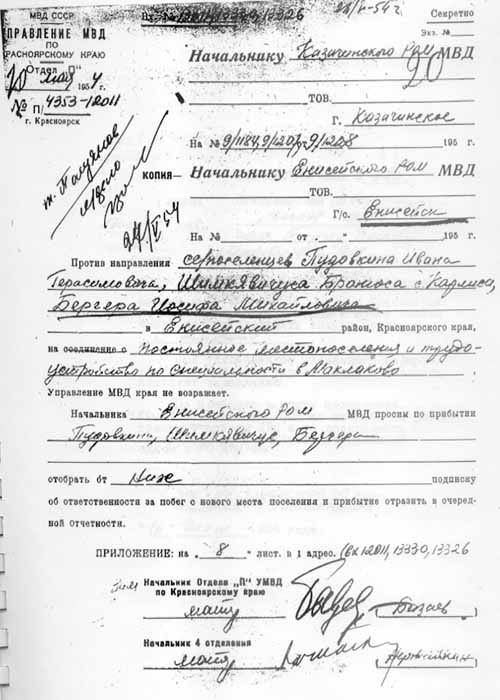 Вх. № 12011, 13330, 13326
МВД СССР
УПРАВЛЕНИЕ МВД
ПО
КРАСНОЯРСКОМУ КРАЮ
Отдел „П"
20 мая 1954
№ П/4353-12011
г. Красноярск
Секретно
Экз. №
Начальнику Казачинского РОМ МВД
20
ТОВ.
г. Казачинское
На № 9/1184, 9/1207, 9/1208 195 г.
КОПИЯ— Начальнику Енисейского РОМ МВД
ТОВ.
Г/с. Енисейск
На № от „ " 195 г.
Против направления сс/поселенцев Пудовкина Ивана
Герасимовича, Шимкявичуса Брониоса с. Карлиса,
Бергера Иосифа Михайловича
в Енисейский район, Красноярского края,
на соединение с постоянное местопоселения и трудо-
устройство по специальности в Маклаково
Управление МВД края не возражает.
Начальника Енисейского РОМ МВД просим по прибытии
Пудовкин, Шимкявичус, Бергера
отобрать от них подписку
об ответственности за побег с нового места поселения и прибытие отразить в очеред-
ной отчетности.
ПРИЛОЖЕНИЕ: на „ 8 " лист. в 1 адрес. (вх 12011, 13330, 13326
Начальник Отдела „П" УМВД
по Красноярскому краю
майор
Начальник 4 отделения
майор